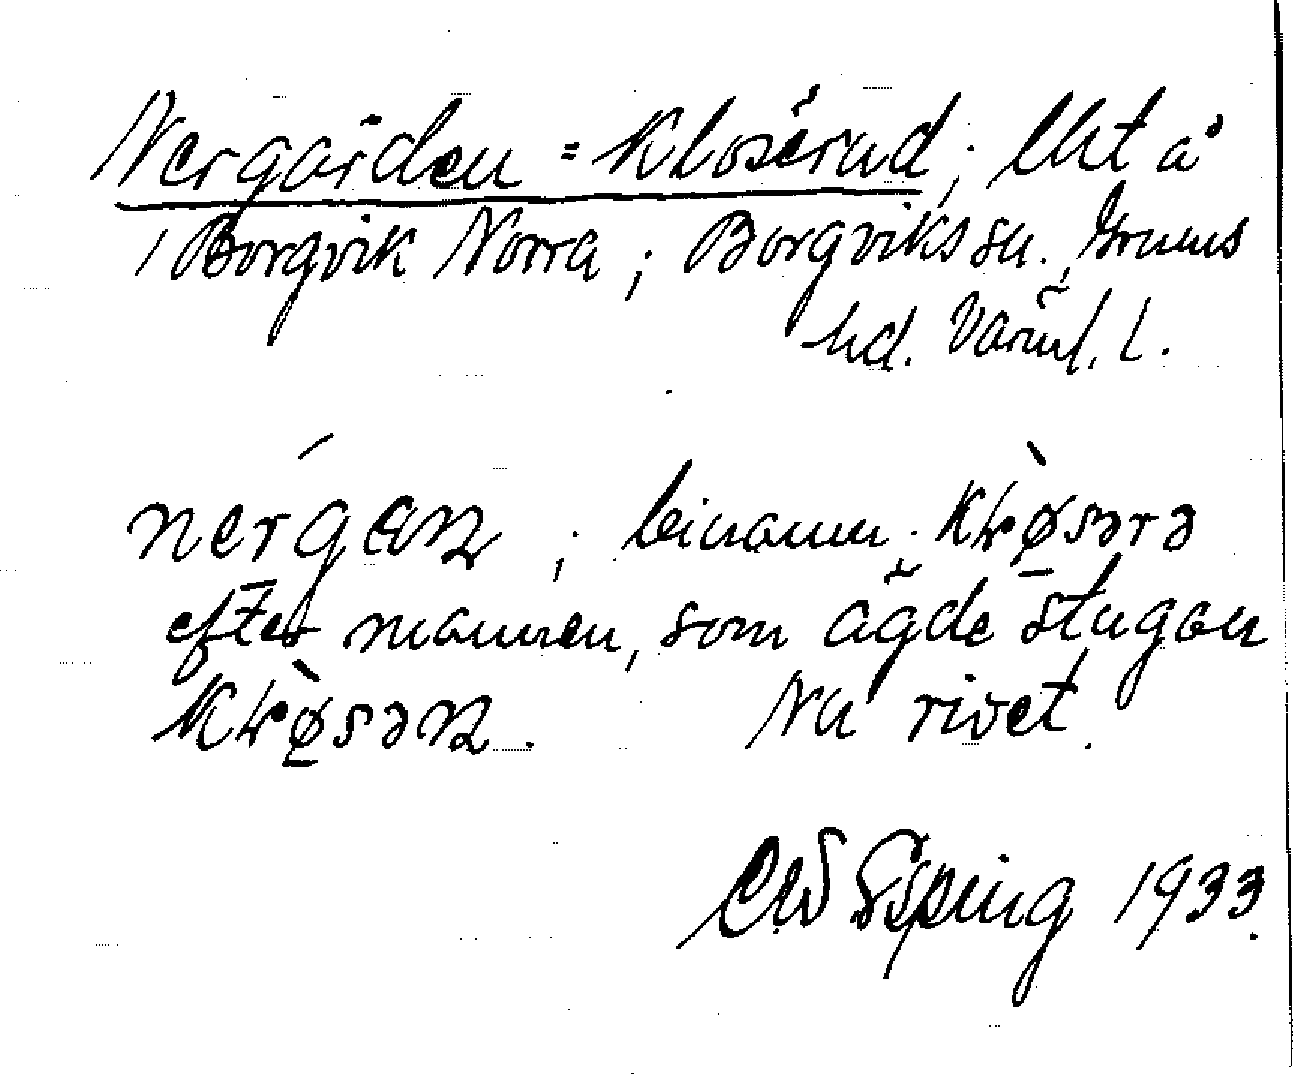 Nergården = Klosérud; lht å
i Borgvik Norra; Borgviks sn., Grums
hd. Värml. l.
nérgaɳ; binamn. Kɫø̀sərə
efter mannen, som ägde stugan
Kɫø̀səɳ. Nu rivet.
Esping 1933.